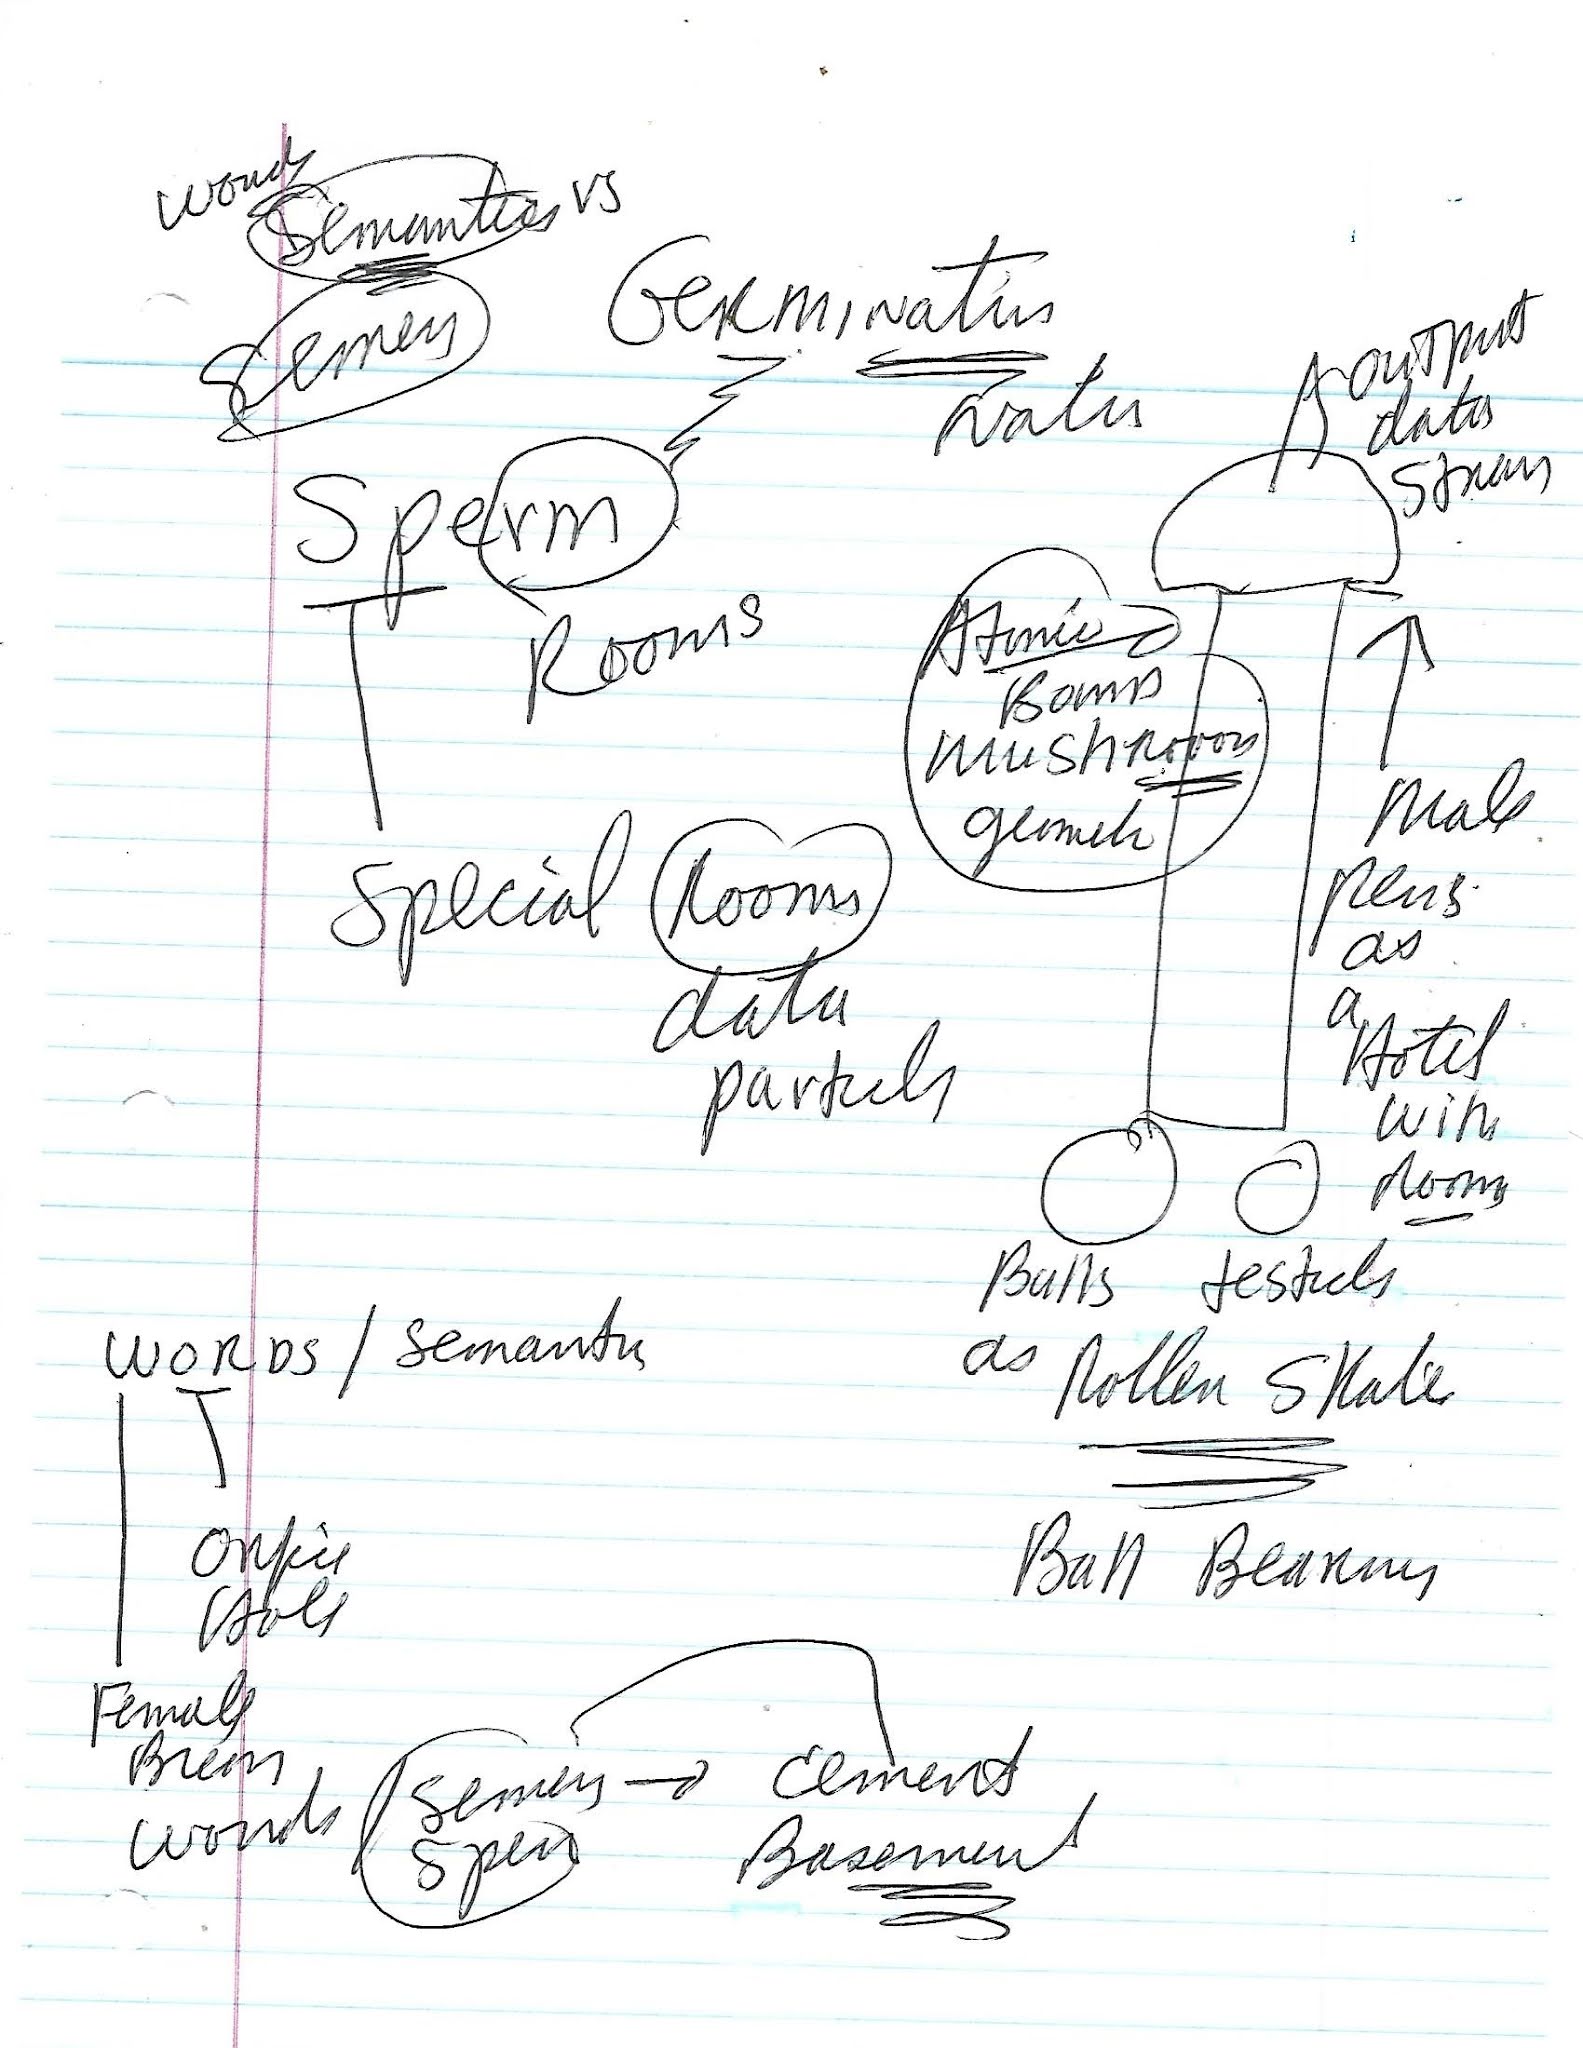 words
Semantics vs
Semen
Germinatin
natin
Sperm
Rooms
Special Rooms
data
particls
output
data
stream
Atomic
Bomb
mushroom
geometr
Male
penis
as
a
Hotel
with
Rooms
Balls testicls
as Roller Skate
Ball Bearing
WORDS / semantics
Orifice
Hole
Female
Brain
words
Semen → cement
Sperm
Basement